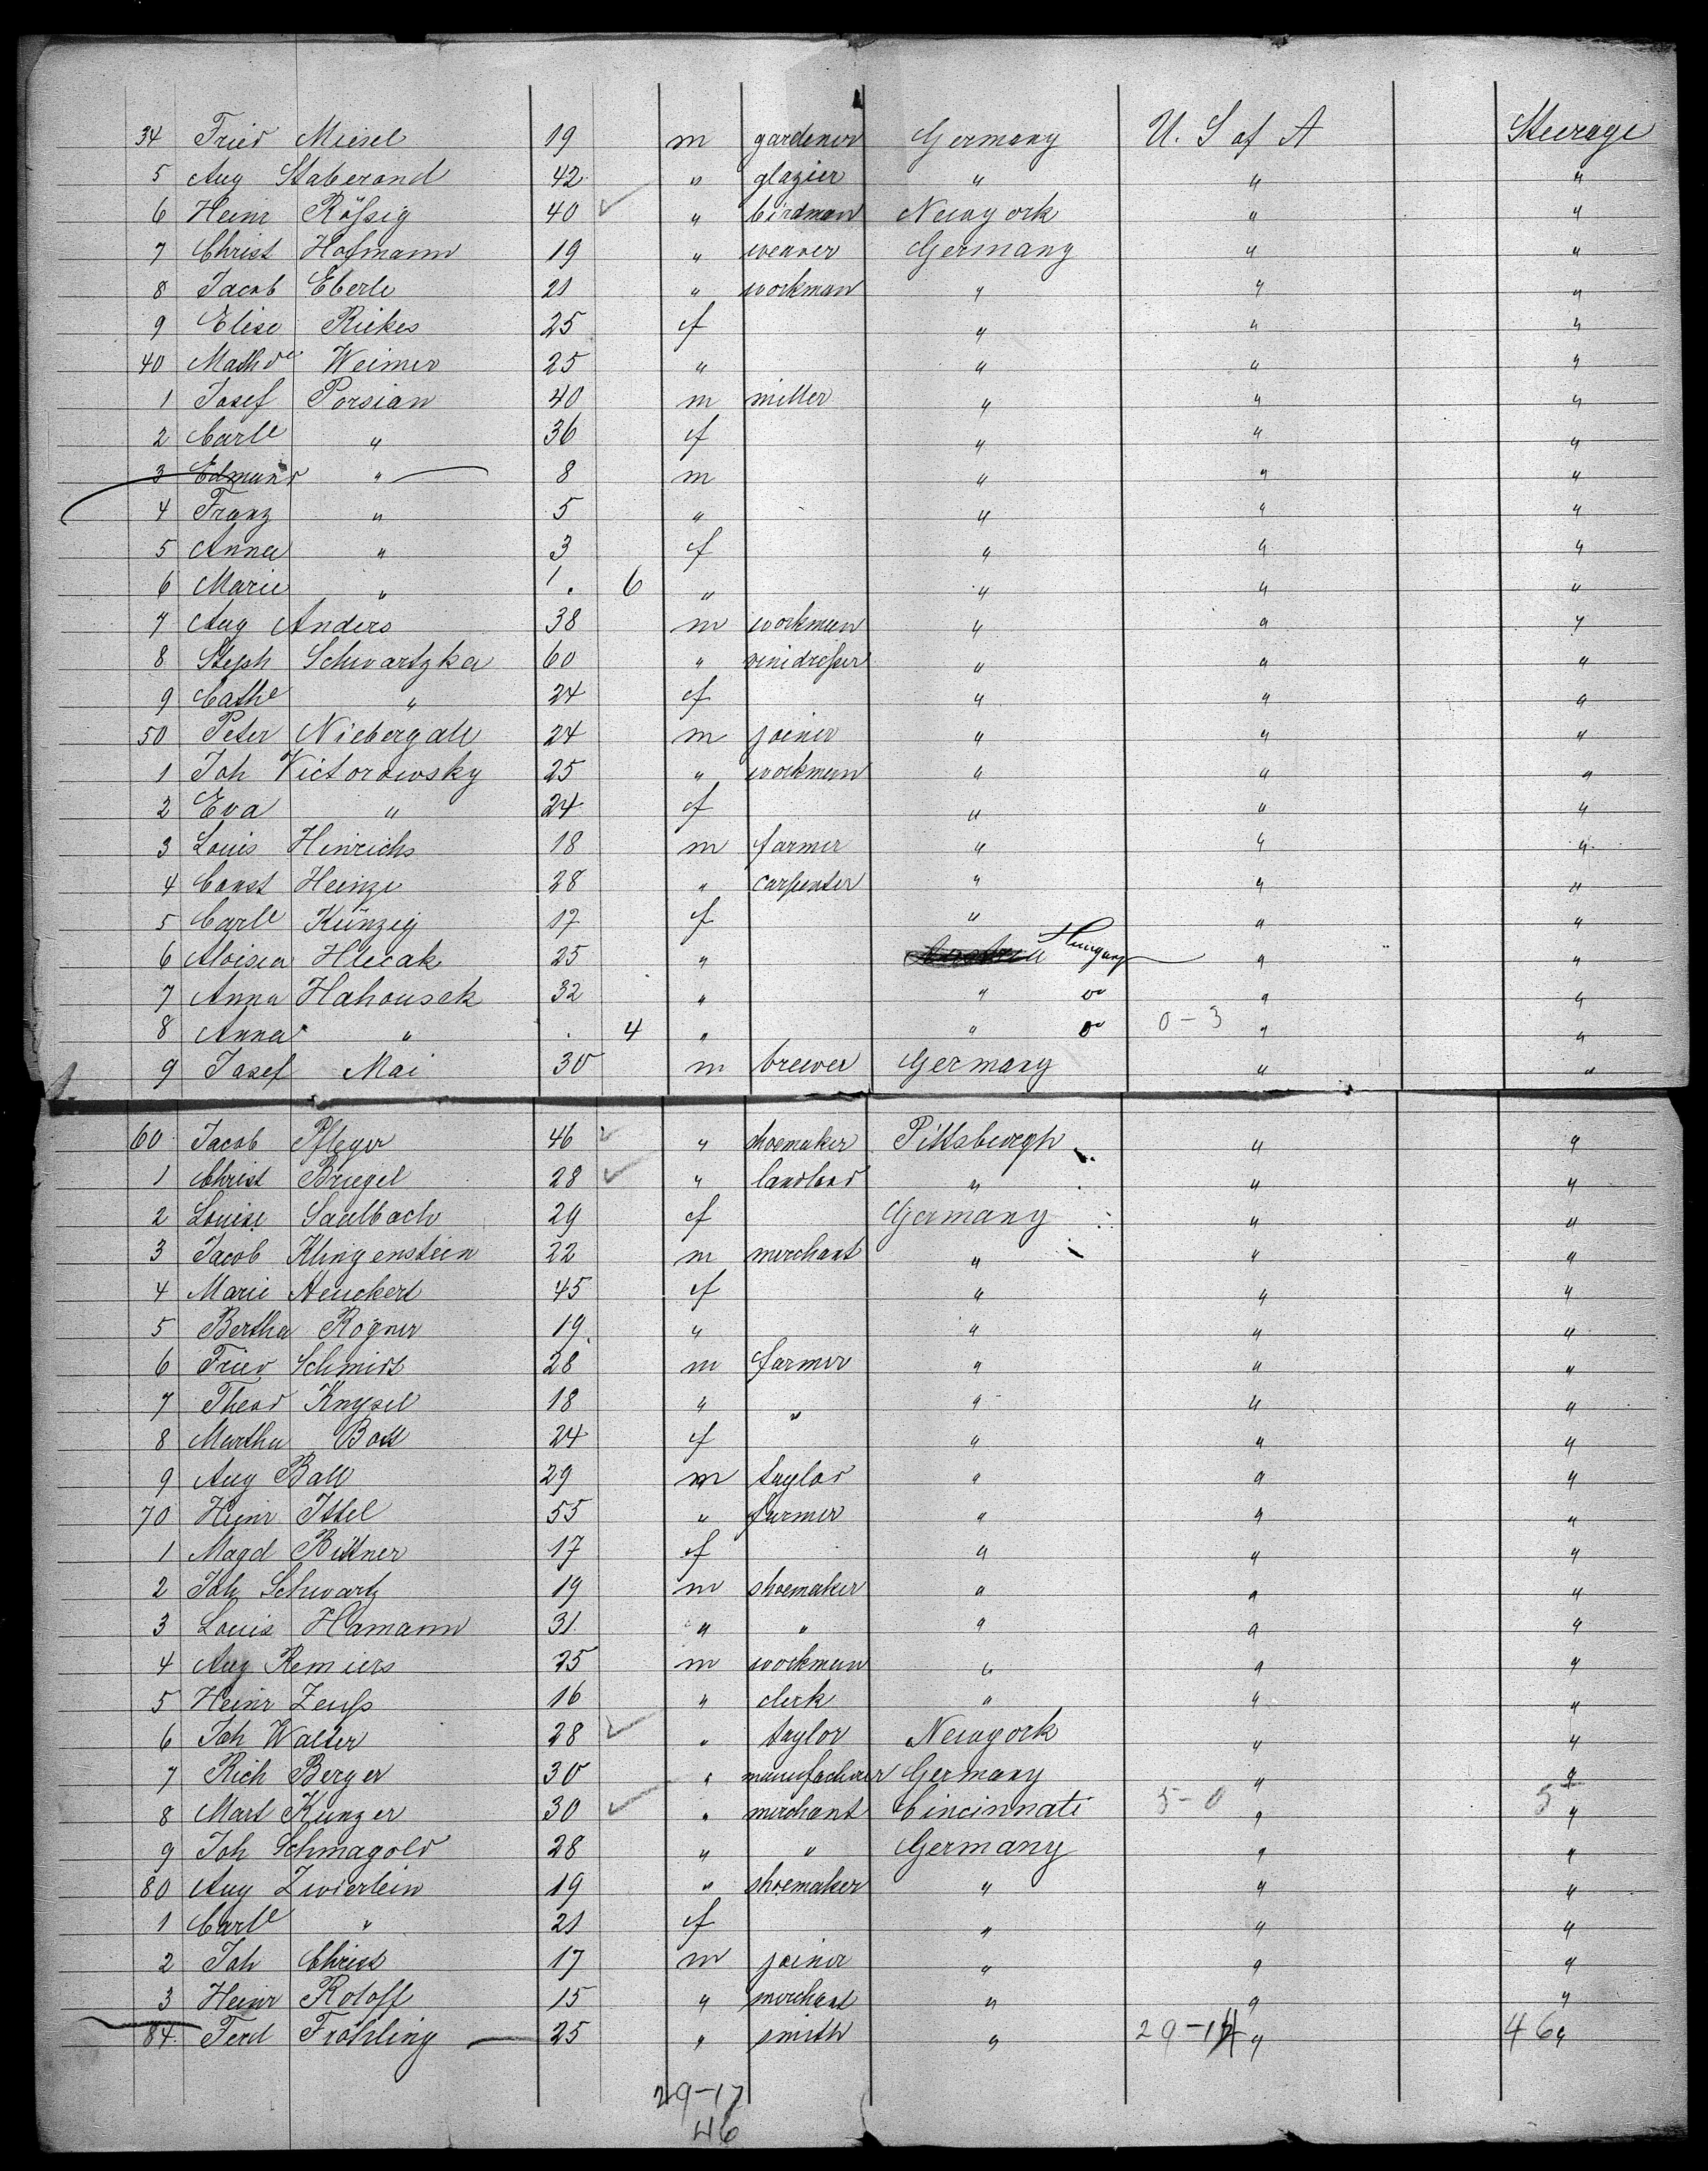 34 Fried Meisel 19 m gardener Germany U. S of A Steerage
5 Aug Staberand 42 " glazier " " "
6 Heinr Rößig 40 ✓ " birdman Newyork " "
7 Christ Hofmann 19 " weaver Germany " "
8 Jacob Eberle 21 " workman " " "
9 Elise Riekes 25 f " " "
40 Mathde Weimer 25 " " " "
1 Josef Porsian 40 m miller " " "
2 Carle " 36 f " " "
3 Edmund " 8 m " " "
4 Franz " 5 " " " "
5 Anna " 3 f " " "
6 Marie " 1. 6 " " " "
7 Aug Anders 38 m workman " " "
8 Steph Schwartzka 60 " vinedreßer " " "
9 Cathe " 24 f " " "
50 Peter Niebergall 24 m joiner " " "
1 Joh Victorowsky 25 " workman " " "
2 Eva " 24 f " " "
3 Louis Hinrichs 18 m farmer " " "
4 Const Heinze 28 " carpenter " " "
5 Carle Künzig 17 f " " "
6 Aloisia Hlecak 25 " Hungary " "
7 Anna Hahousek 32 " " do " "
8 Anna " . 4 " " do 0-3 " "
9 Josef Mai 30 m brewer Germany " "
60 Jacob Pfleger 46 ✓ " shoemaker Pittsburgh " "
1 Christ Briegel 28 ✓ " landlord " " "
2 Louise Saulbach 29 f Germany " "
3 Jacob Klingenstein 22 m merchant " " "
4 Marie Heuckert 45 f " " "
5 Bertha Rögner 19 " " " "
6 Fried Schmidt 28 m farmer " " "
7 Theod Knysel 18 " " " " "
8 Martha Ball 24 f " " "
9 Aug Ball 29 m taylor " " "
70 Heinr Ittel 55 " farmer " " "
1 Magd Bittner 17 f " " "
2 Joh Schwartz 19 m shoemaker " " "
3 Louis Hamann 31 " " " " "
4 Aug Remiers 25 m workman " " "
5 Heinr Zeuß 16 " clerk " " "
6 Joh Walter 28 ✓ " taylor Newyork " "
7 Rich Berger 30 " manufacturer Germany " "
8 Mart Kunzer 30 ✓ " merchant Cincinnati 5-0 " 5 "
9 Joh Schmagold 28 " " Germany " "
80 Aug Zwierlein 19 " shoemaker " " "
1 Carle " 21 f " " "
2 Joh Christ 17 m joiner " " "
3 Heinr Roloff 15 " merchant " " "
84. Ferd Fröhling 25 " smith " 29-17 " 46 "
29-17
46